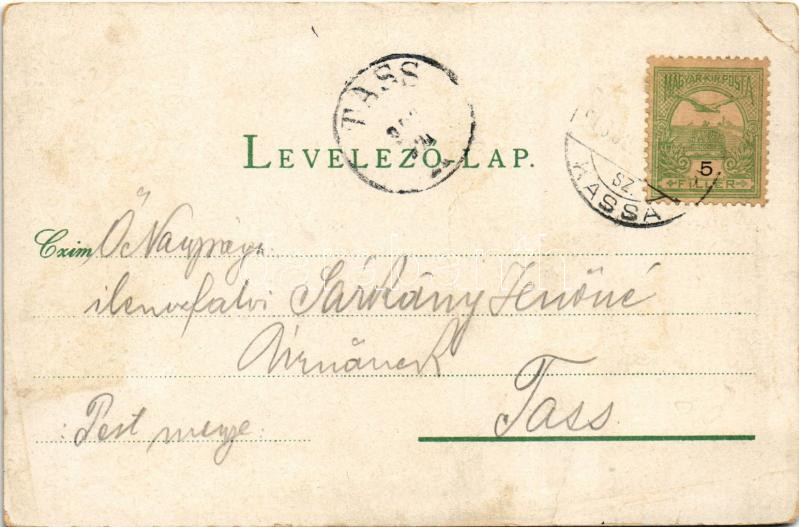 TASS
MAGYAR KIR. POSTA
5
FILLÉR
KASSA
SZ.
LEVELEZŐ LAP.
Czim Ő Nagysága
ilencfalvi Sárkány Jenőné
Úrnőnek
Pest megye.
Tass